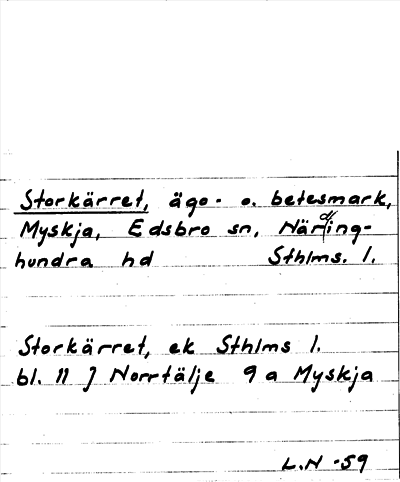 Storkärret, ägo- o. betesmark,
Myskja, Edsbro sn, Närding-
hundra hd Sthlms. l.
Storkärret, ek Sthlms l.
bl. 11 J Norrtälje 9 a Myskja
L.N -59